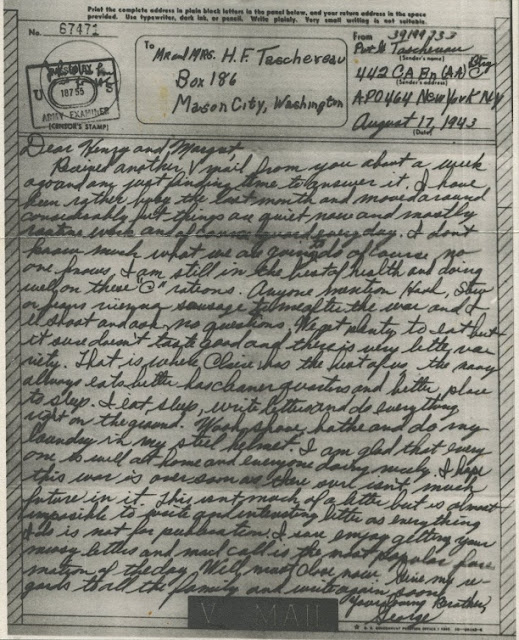 Print the complete address in plain block letters in the panel below, and your return address in the space
provided. Use typewriter, dark ink, or pencil. Write plainly. Very small writing is not suitable.
No. 67471
To Mr and MRS. H. F. Taschereau
Box 186
Mason City, Washington
From 39199733
Pvt G Taschereau
(Sender's name)
442 CA Bn (AA) Btry C
(Sender's address)
APO 464 New York NY
August 17, 1943
(Date)
U
18755
ARMY EXAMINER
(CENSOR'S STAMP)
Dear Henry and Margret,
Recieved another V mail from you about a week
ago and am just finding time to answer it. I have
been rather busy the last month and moved around
considerably but things are quiet now and mostly
routine work and of course guard every day. I don't
know much what we are going to do of course, no
one knows. I am still in the best of health and doing
well on these "C" rations. Anyone mention Hash, Stew
or vienna sausage to me after the war and I
'll shoot and ask no questions. We get plenty to eat but
it sure doesn't taste good and there is very little var
riety. That is where Claire has the best of us, the navy
always eats better has cleaner quarters and better place
to sleep. I eat, sleep, write letters and do everything
right on the ground. Wash, shave, bathe and do my
laundry in my steel helmet. I am glad that every
one is well at home and everyone doing nicely. I hope
this war is over soon as there sure isn't much
future in it. This isnt much of a letter but is almost
impossible to write and interesting letter as everything
I do is not for publication. I sure enjoy getting your
newsy letters and mail call is the most popular for
mation of the day. Well, must close now. Give my re
gards to all the family and write again soon
Your loving Brother,
George
V-MAIL